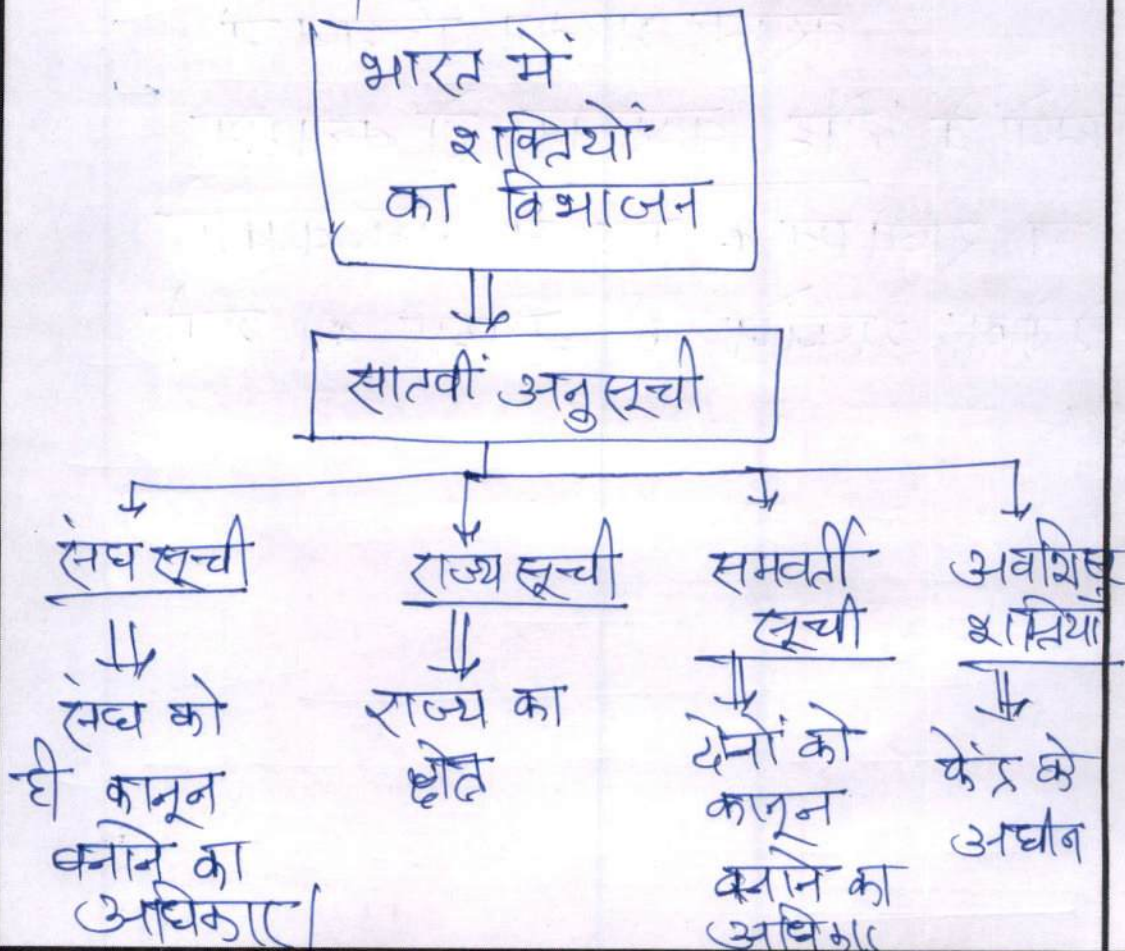 भारत में
शक्तियों
का विभाजन
सातवीं अनुसूची
संघ सूची
संघ को
ही कानून
बनाने का
अधिकार।
राज्य सूची
राज्य का
क्षेत्र
समवर्ती
सूची
दोनों को
कानून
बनाने का
अधिकार
अवशिष्ट
शक्तियां
केंद्र के
अधीन